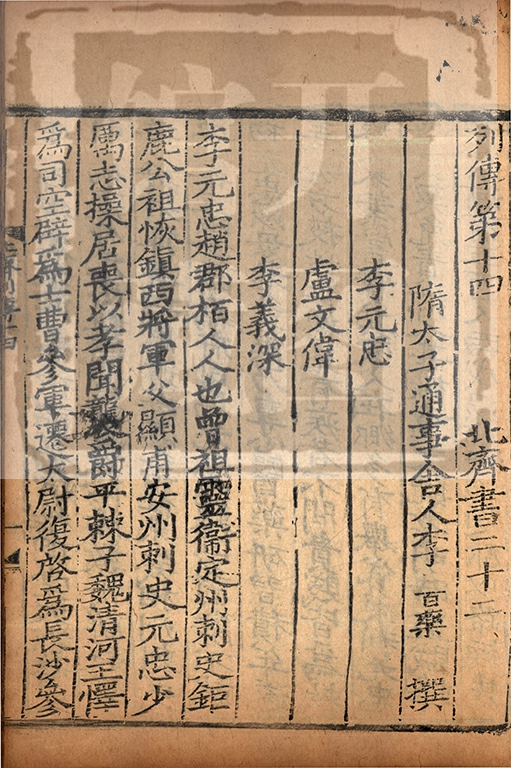 列傳第十四 北齊書二十二
隋太子通事舍人李 百藥 撰
李元忠
盧文偉
李義深
李元忠趙郡栢人人也曾祖靈衛定州刺史鉅
鹿公祖恢鎮西將軍父顯甫安州刺史元忠少
厲志操居喪以孝聞襲爵平棘子魏清河王懌
為司空辟為士曹參軍遷太尉復啓為長沙參